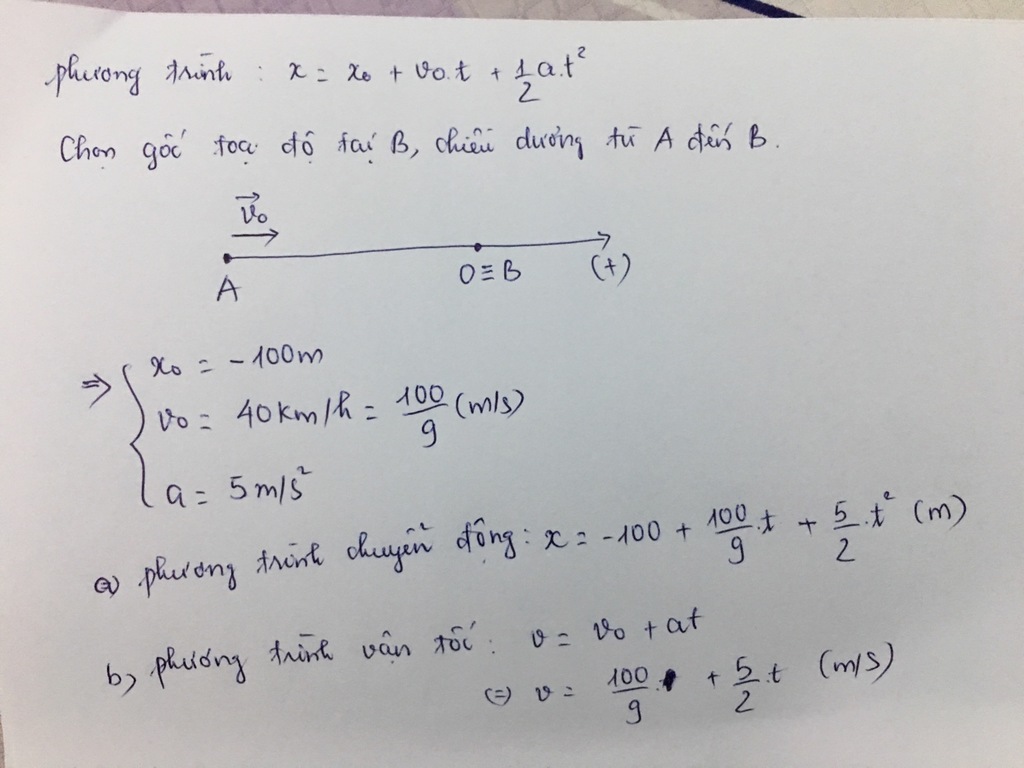 phương trình : x = x₀ + v₀.t + 1/2 a.t²
Chọn gốc toạ độ tại B, chiều dương từ A đến B.
v₀
A
O ≡ B
(+)
⇒ { x₀ = - 100m
v₀ = 40 km/h = 100/9 (m/s)
a = 5 m/s²
a) phương trình chuyển động: x = -100 + 100/9 .t + 5/2 .t² (m)
b, phương trình vận tốc: v = v₀ + at
(=) v = 100/9 + 5/2 .t (m/s)